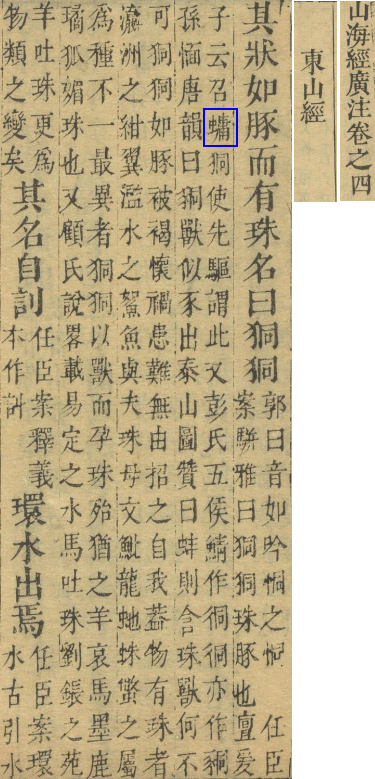 山海經廣注卷之四
東山經
其狀如豚而有珠名曰狪狪
郭曰音如吟恫之恫 任臣
案駢雅曰狪狪珠豚也亶爰
子云召狪使先驅謂此又彭氏五侯鯖作亦作
孫愐唐韻曰狪獸似豕出泰山圖贊曰蚌則含珠獸何不
可狪狪如豚被褐懷禍患難無由招之自我蓋物有珠者
瀛洲之紺翼濫水之鴽魚與夫珠母文魮龍虵蛛蟞之屬
爲種不一最異者狪狪以獸而孕珠殆猶之羊哀馬墨鹿
璚狐媚珠也又顧氏說畧載易定之水馬吐珠劉鋹之苑
羊吐珠更爲
物類之變矣
其名自訓
任臣案釋義
本作訆
環水出焉
任臣案環
水古引水